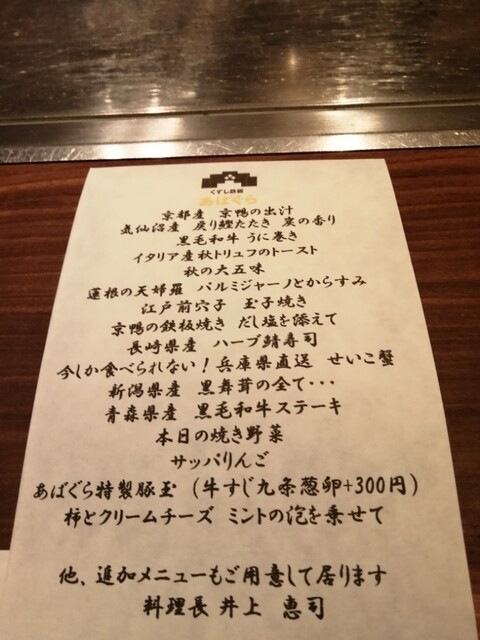 くずし鉄板
あばぐら
京都産 京鴨の出汁
気仙沼産 戻り鰹たたき 炭の香り
黒毛和牛 うに巻き
イタリア産秋トリュフのトースト
秋の大五味
蓮根の天婦羅 パルミジャーノとからすみ
江戸前穴子 玉子焼き
京鴨の鉄板焼き だし塩を添えて
長崎県産 ハーブ鯖寿司
今しか食べられない！兵庫県直送 せいこ蟹
新潟県産 黒舞茸の全て・・・
青森県産 黒毛和牛ステーキ
本日の焼き野菜
サッパりんご
あばぐら特製豚玉 （牛すじ九条葱卵+300円）
柿とクリームチーズ ミントの泡を乗せて
他、追加メニューもご用意して居ります
料理長 井上 恵司